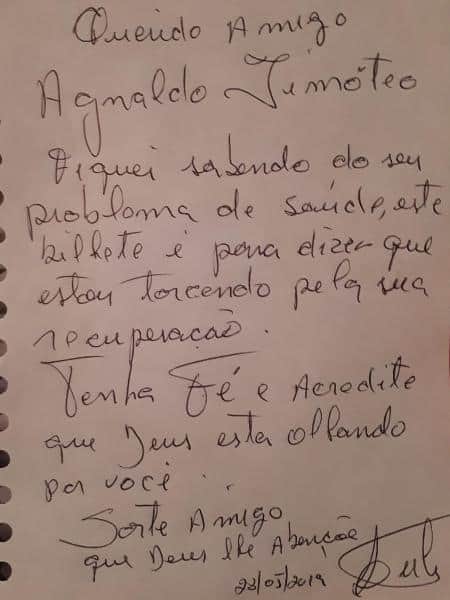 Querido Amigo
Agnaldo Timóteo
Fiquei sabendo do seu
problema de saúde, este
bilhete é para dizer que
estou torcendo pela sua
recuperação.
Tenha Fé e Acredite
que Deus esta olhando
por você.
Sorte Amigo
que Deus lhe Abençõe
23/05/2019 Lula